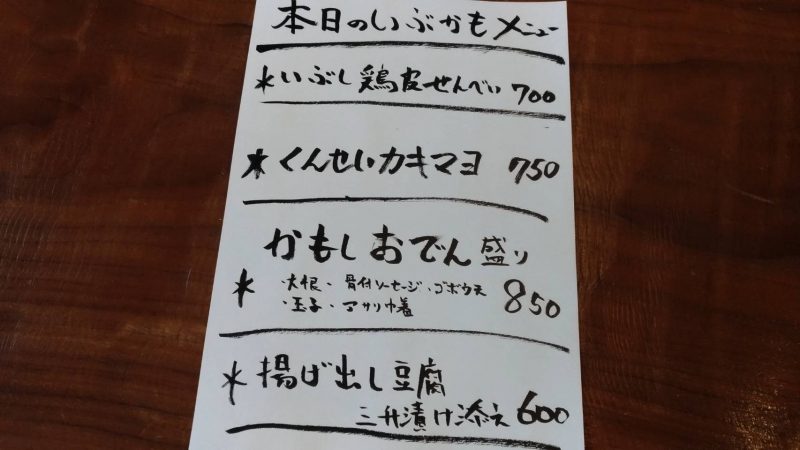 本日のいぶかもメニュー
*いぶし鶏皮せんべい 700
*くんせいカキマヨ 750
かもしおでん盛り
*・大根・骨付ソーセージ・ゴボウ天 850
・玉子・アサリ巾着
*揚げ出し豆腐
三升漬け添え 600